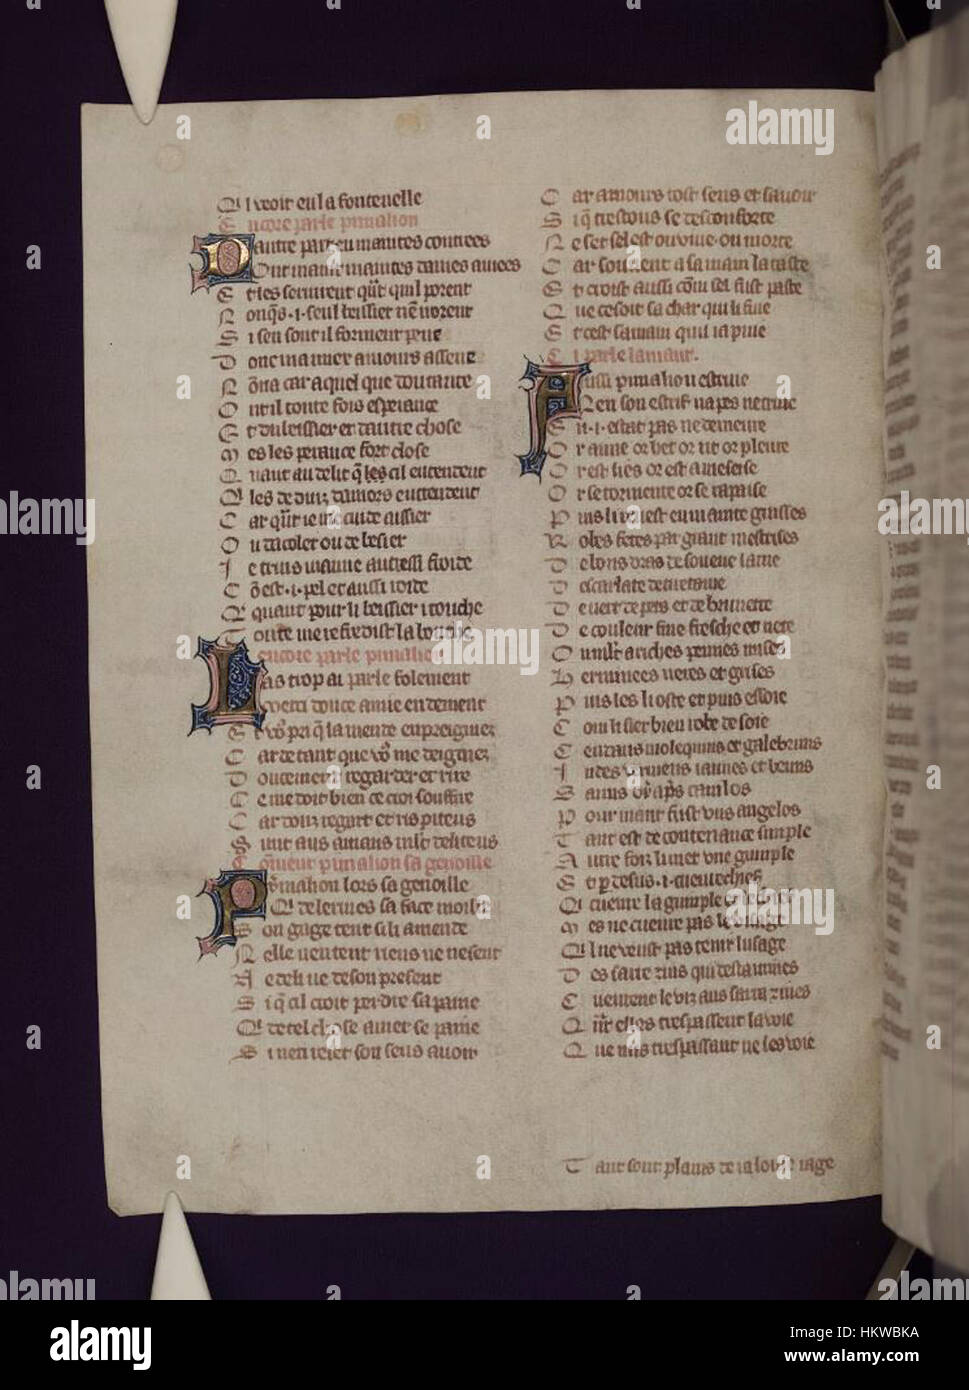 Q'l veoit en la fonteuelle
Encore parle pimalion
Dautre part en maintes contrees
Ont maint maintes dames amees
Et les seruirent qu'r quil porent
N onq's .i. seul beissier nē n orent
Si sen sont il forment pene
Donc ma mier amours assene
Nōna car a quel que doutance
Ont il toute fois esperance
Et du beissier et dautre chose
Mes les perance fort close
Quant au delit q̄ les cil entendent
Q'les deduiz damors entendent
Car qu'r ie me cuide aissier
Ou dacoler ou de besier
Ie truis mamie autressi froide
Cōest .i. pel et aussi roide
Q' quant pour li beissier i touche
Toute me refredist la bouche
encore parle pimalion
Las trop ai parle folement
Merci douce amie en dement
Et vo9 pri q̄ lamende en preigniez
Car de tant que vo9 me deigniez
Doucement regarder et rire
Ce me doit bien ce croi souffire
Car douz regart et ris piteus
Sunt aus amans mlt deliteus
Cōment pimalion sa genoille
Pymalion lors sa genoille
Q' de lermes sa face moille
Son gage tent si li amende
Nelle nentent riens ne ne sent
Ne de li ne de son present
Si q' cil croit perdre sa paine
Q' de tel chose amer se paine
Si nen reiet son sens auoir
Car amours tost sens et sauoir
Si q' trestous se desconforte
Ne set sel est ou viue ou morte
Car souuent a sa main la taste
Et croist aussi cōm sel fust paste
Que ce soit sa char qui li fuie
Et cest sa main quil i apuie
Ci parle lamant.
Aussi pimalion estriue
Nen son estrif na pes ne triue
En .i. estat pas ne demeure
Or aime or het or rit or pleure
Or est lies or est a mesese
Or se tormente or se rapaise
Puis li vuest en mainte guisses
Robes fetes par grant mestrises
De blons dras de soueue laine
Descarlate de tiretaine
De vert de pers et de brunette
De couleur fine fresche et nete
Ou mlt a riches pennes mises
Herminees veres et grises
Puis les li oste et puis essoie
Com li sier bien robe de soie
Cendaus molequins et galebruns
Indes vermeus iaunes et bruns
Samis dyapres camlos
Pour niant fust vns angelos
Tant est de contenance simple
Aune foiz li met vne guimple
Et p desus .i. cueurechief
Q' cueure la guimple et le chief
Mes ne cueure pas le visage
Q'l ne veust pas tenir lusage
Des sarrezins qui destamines
Cueurent le viz aus sarrazines
Qu'r elles trespassent la voie
Que nus trespassant ne les voie
Tant sont plains de ialouse rage
alamy
Image ID: HKWBKA
www.alamy.com